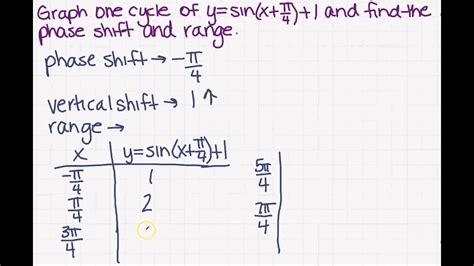 Graph one cycle of y=sin(x+π/4)+1 and find the
phase shift and range.
phase shift → -π/4
vertical shift → 1 ↑
range →
x | y=sin(x+π/4)+1
-π/4 | 1
π/4 | 2
3π/4
5π/4
7π/4